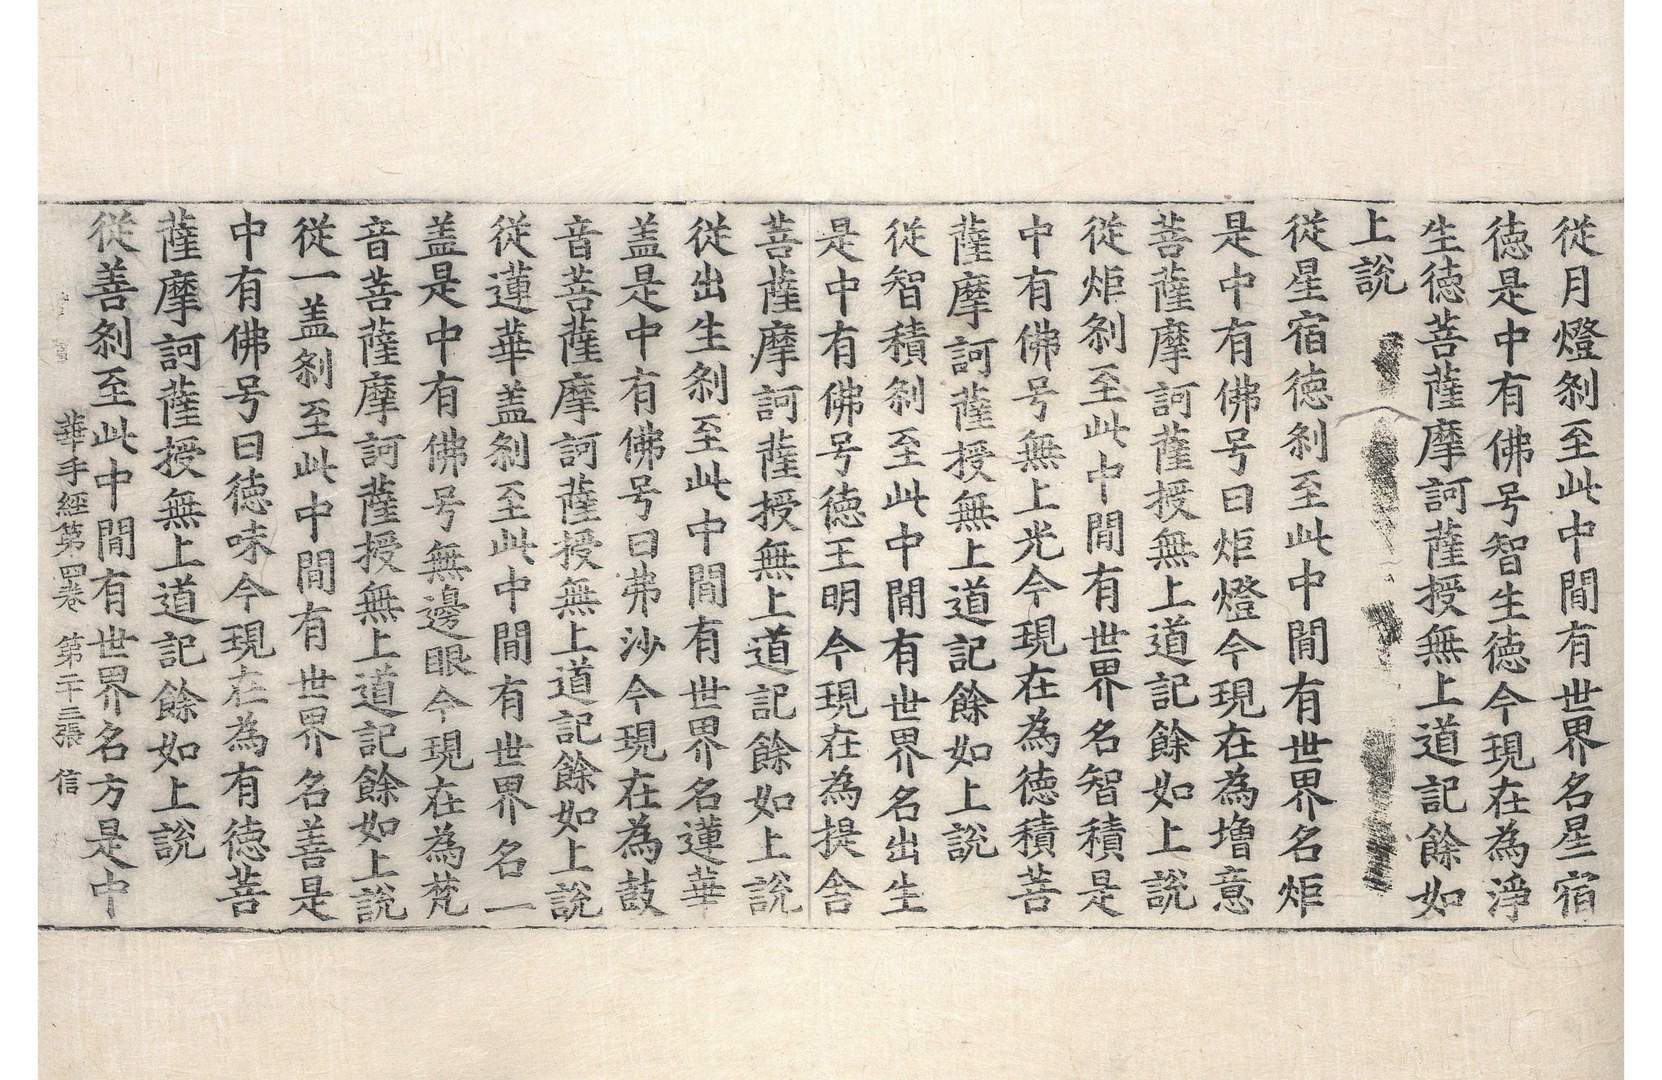 從月燈刹至此中間有世界名星宿
德是中有佛号智生德今現在為淨
生德菩薩摩訶薩授無上道記餘如
上說
從星宿德刹至此中間有世界名炬
是中有佛号曰炬燈今現在為增意
菩薩摩訶薩授無上道記餘如上說
從炬刹至此中間有世界名智積是
中有佛号無上光今現在為德積菩
薩摩訶薩授無上道記餘如上說
從智積刹至此中間有世界名出生
是中有佛号德王明今現在為提舍
菩薩摩訶薩授無上道記餘如上說
從出生刹至此中間有世界名蓮華
盖是中有佛号曰弗沙今現在為鼓
音菩薩摩訶薩授無上道記餘如上說
從蓮華盖刹至此中間有世界名一
盖是中有佛号無邊眼今現在為梵
音菩薩摩訶薩授無上道記餘如上說
從一盖刹至此中間有世界名善是
中有佛号曰德味今現在為有德菩
薩摩訶薩授無上道記餘如上說
從善刹至此中間有世界名方是中
華手經第四卷 第二十三張 信